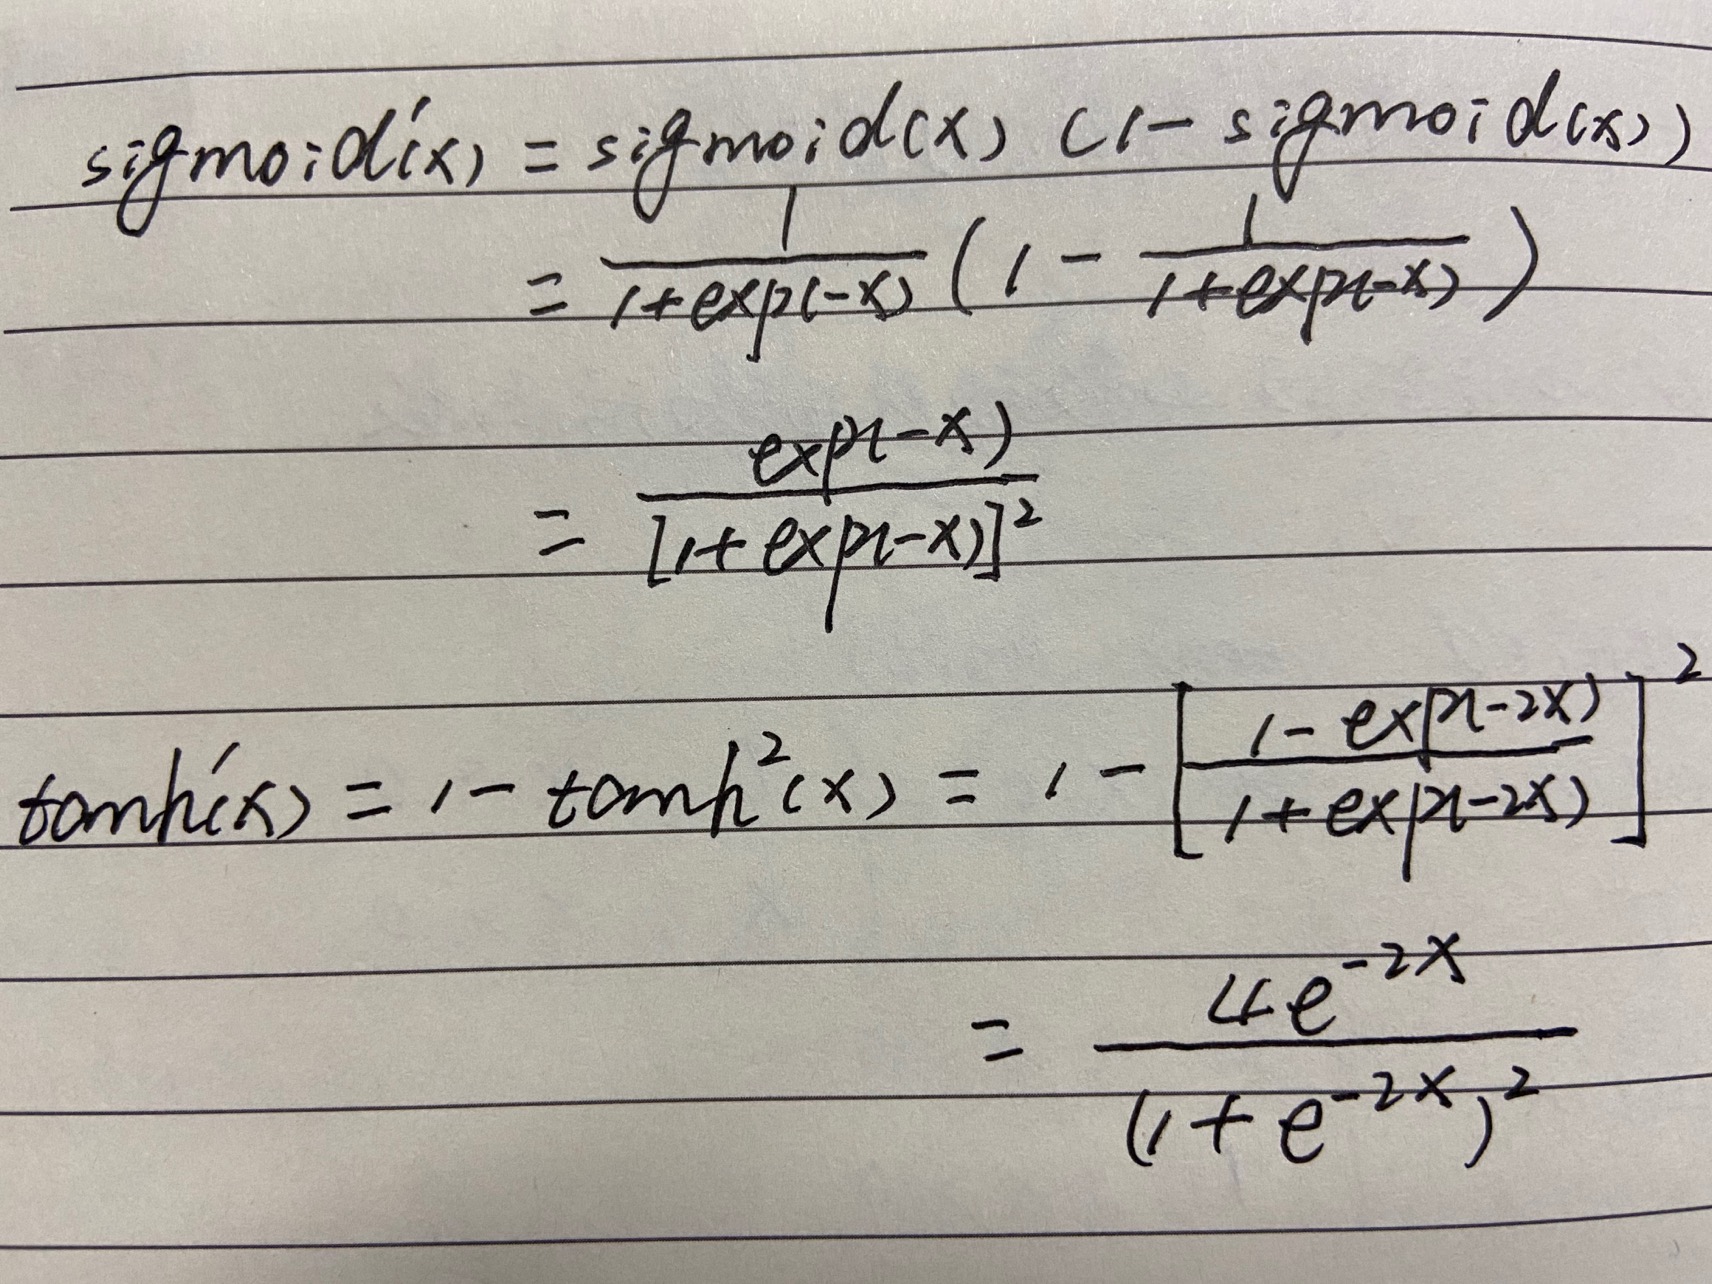 sigmoid'(x) = sigmoid(x) (1 - sigmoid(x))
= \frac{1}{1+exp(-x)} (1 - \frac{1}{1+exp(-x)})
= \frac{exp(-x)}{[1+exp(-x)]^2}
tanh'(x) = 1 - tanh^2(x) = 1 - [\frac{1-exp(-2x)}{1+exp(-2x)}]^2
= \frac{4e^{-2x}}{(1+e^{-2x})^2}